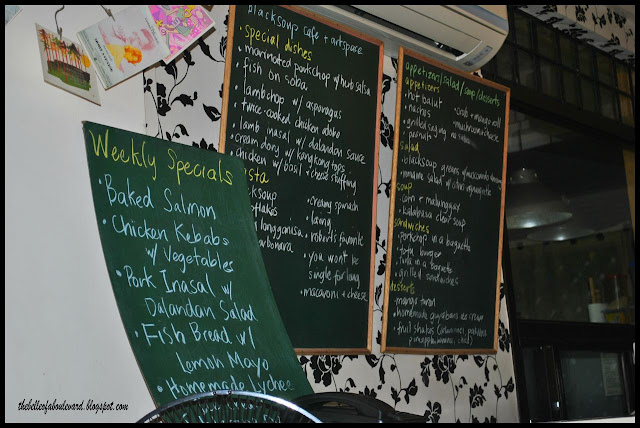 Weekly Specials
• Baked Salmon
• Chicken Kebabs
w/ Vegetables
• Pork Inasal w/
Dalandan Salad
• Fish Bread w/
Lemon Mayo
• Homemade Lychee
blacksoup cafe + artspace
• special dishes
• marinated porkchop w/ hub salsa
• fish on soba
• lambchop w/ asparagus
• twice-cooked chicken adobo
lamb inasal w/ dalandan sauce
• cream dory w/ kangkong tops
chicken w/ basil + cheese stuffing
pasta
longganisa
carbonara
• creamy spinach
• lamb
• robert's favorite
• you won't be
single for long
• macaroni + cheese
appetizers/salad/soup/desserts
appetizers
• hot balut
• nachos
• peanut
• crab + mango roll
• mushroom cheese
salad
• blacksoup greens w/
soup
• corn + malunggay
• kalabasa clear soup
sandwiches
• porkchop in a baguette
• tofu burger
• tuna in a baguette
• grilled sandwiches
desserts
• mango turon
• homemade guyabano ice cream
• fruit shakes
thebelleofaboulevard.blogspot.com